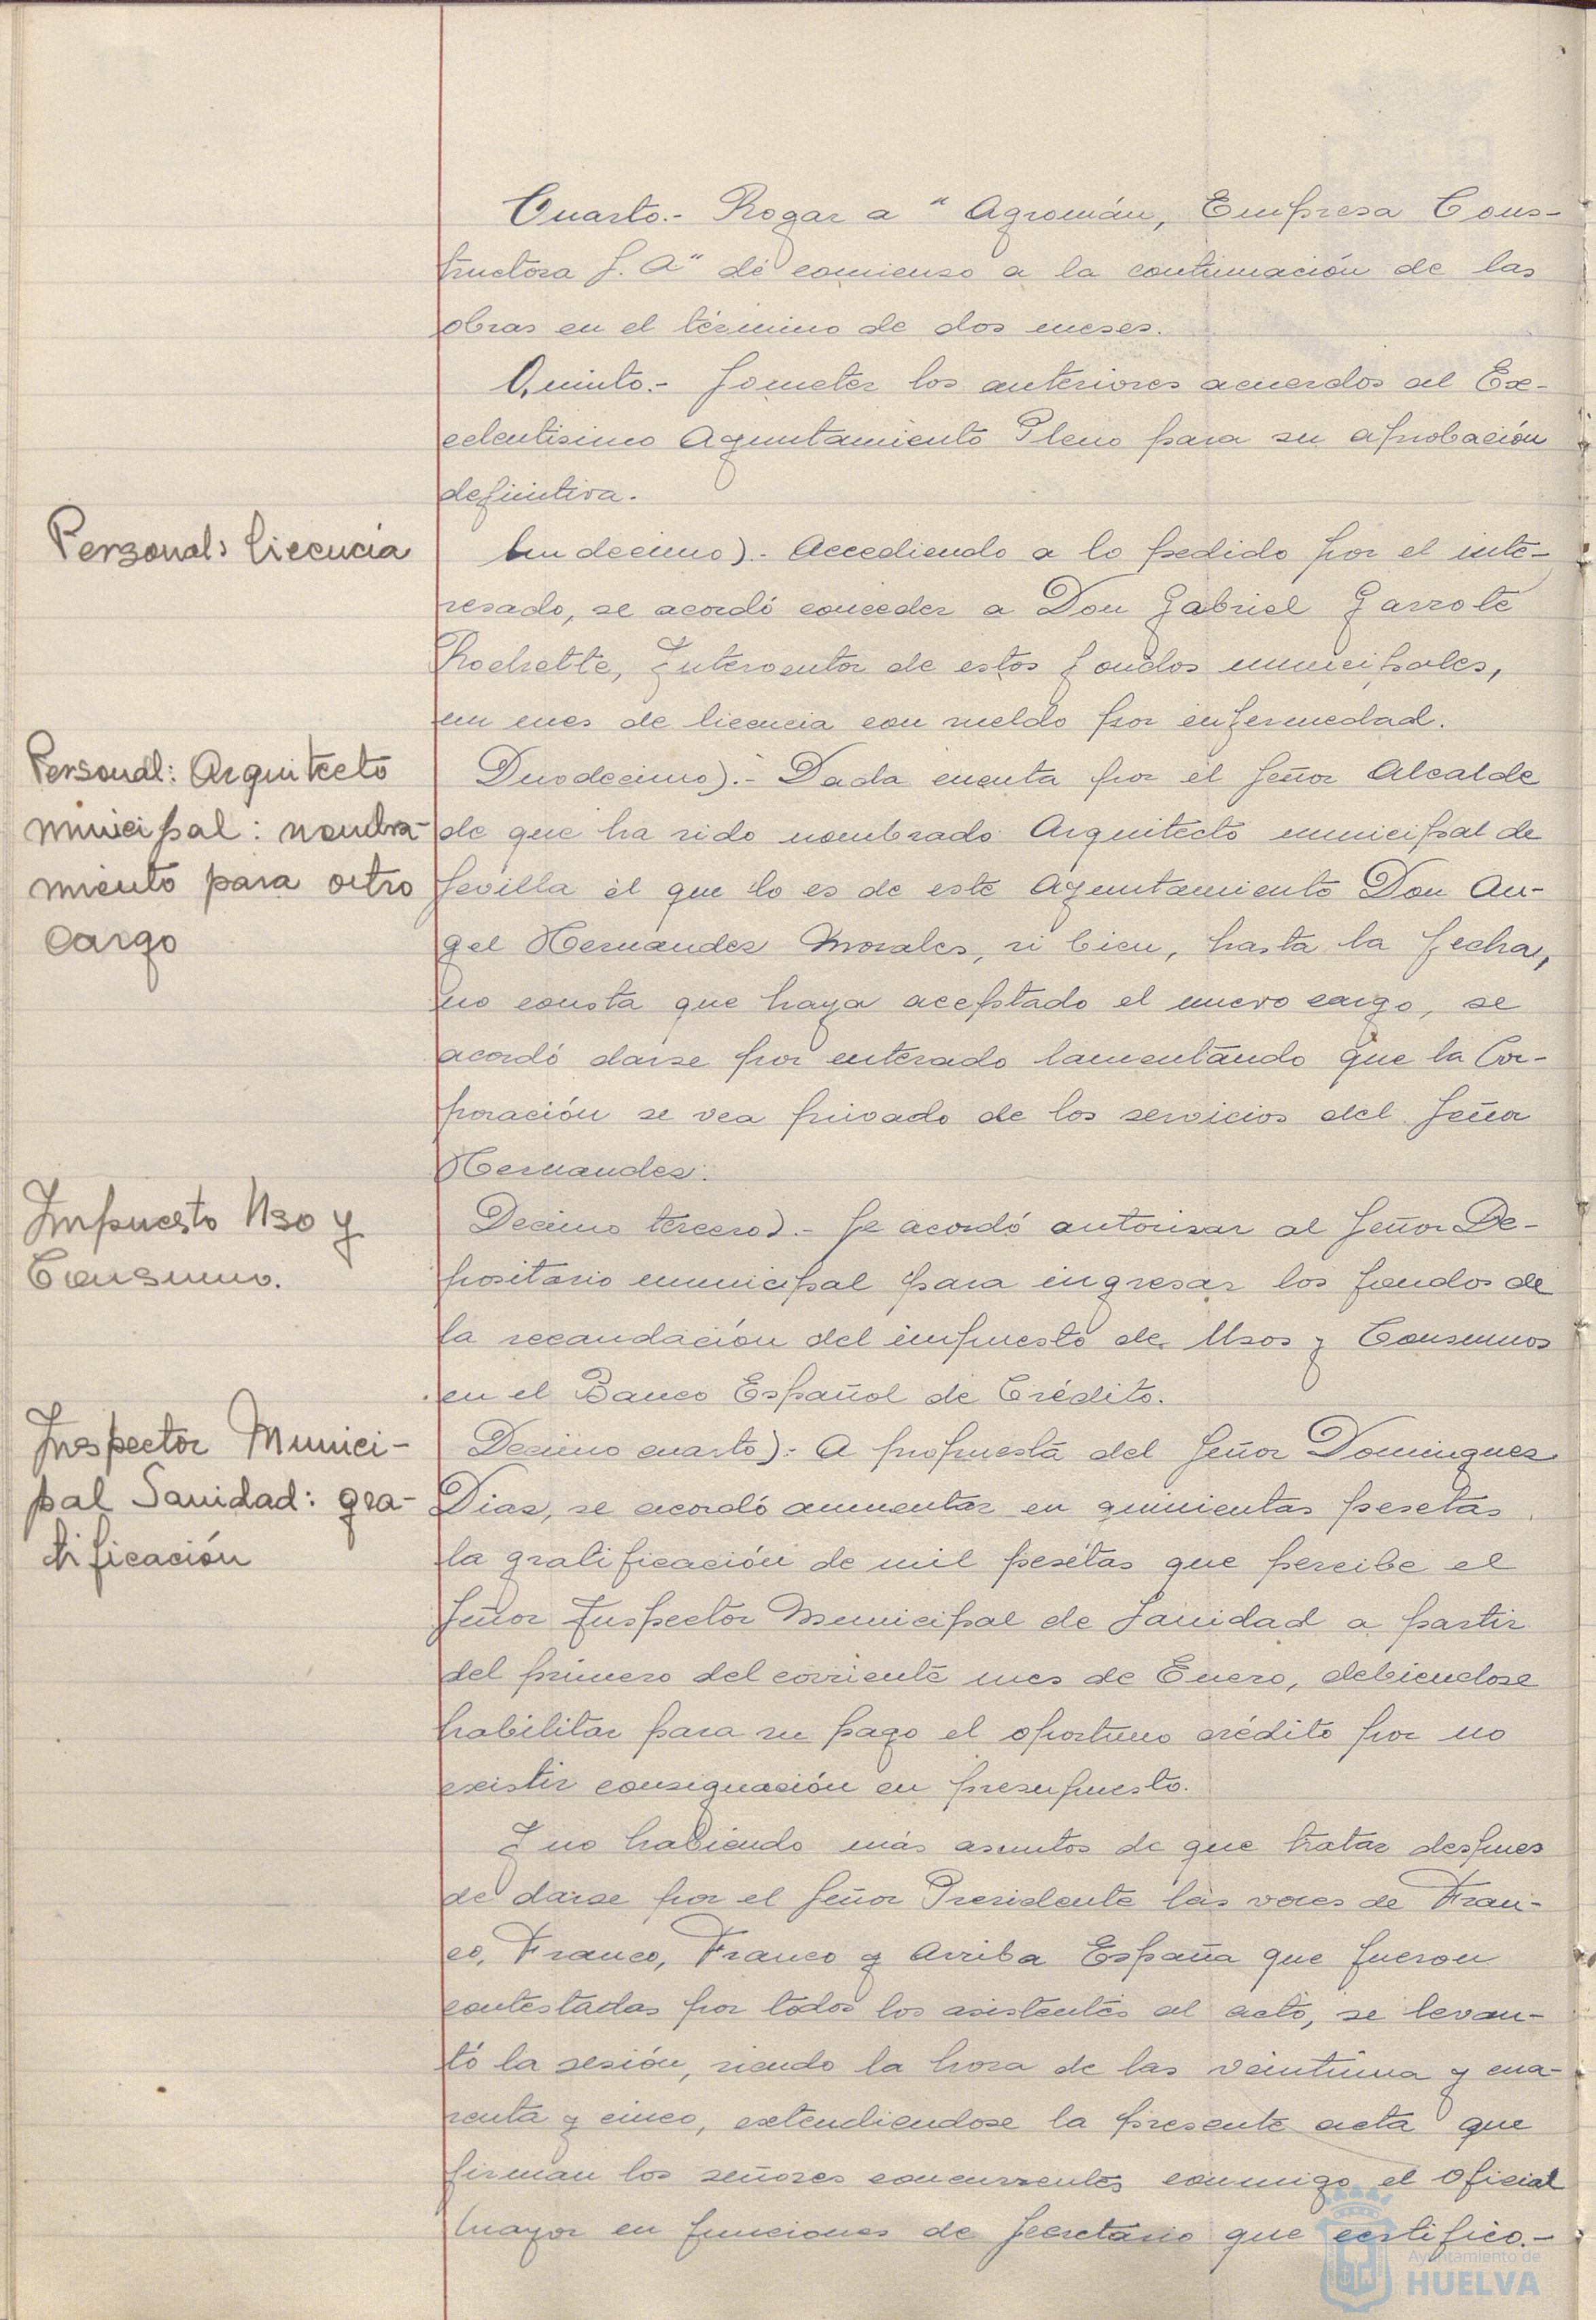 Cuarto.- Rogar a "Agromán, Empresa Cons-
tructora S.A" dé comienso a la continuación de las
obras en el término de dos meses.
Quinto.- Someter los anteriores acuerdos al Ex-
celentisimo Ayuntamiento Pleno para su aprobación
definitiva.
Personal: licencia
Undecimo).- Accediendo a lo pedido por el inte-
resado, se acordó conceder a Don Gabriel Garrote
Rochette, Interventor de estos fondos municipales,
un mes de licencia con sueldo por enfermedad.
Personal: Arquitecto
municipal: nombra-
miento para otro
cargo
Duodecimo).- Dada cuenta por el Señor Alcalde
de que ha sido nombrado Arquitecto municipal de
Sevilla el que lo es de este Ayuntamiento Don An-
gel Hernandez Morales, si bien, hasta la fecha,
no consta que haya aceptado el nuevo cargo, se
acordó darse por enterado lamentando que la Cor-
poración se vea privado de los servicios del Señor
Hernandez.
Impuesto Uso y
Consumo.
Decimo tercero).- Se acordó autorizar al Señor De-
positario municipal para ingresar los fondos de
la recaudación del impuesto de Usos y Consumos
en el Banco Español de Crédito.
Inspector Munici-
pal Sanidad: gra-
tificación
Decimo cuarto).- A propuesta del Señor Dominguez
Dias, se acordó aumentar en quinientas pesetas
la gratificación de mil pesetas que percibe el
Señor Inspector Municipal de Sanidad a partir
del primero del corriente mes de Enero, debiendose
habilitar para su pago el oportuno crédito por no
existir consignación en presupuesto.
Y no habiendo más asuntos de que tratar despues
de darse por el Señor Presidente las voces de Fran-
co, Franco, Franco y Arriba España que fueron
contestadas por todos los asistentes al acto, se levan-
tó la sesión, siendo la hora de las veintiuna y cua-
renta y cinco, extendiendose la presente acta que
firman los señores concurrentes conmigo el Oficial
Mayor en funciones de Secretario que certifico.-
Ayuntamiento de
HUELVA